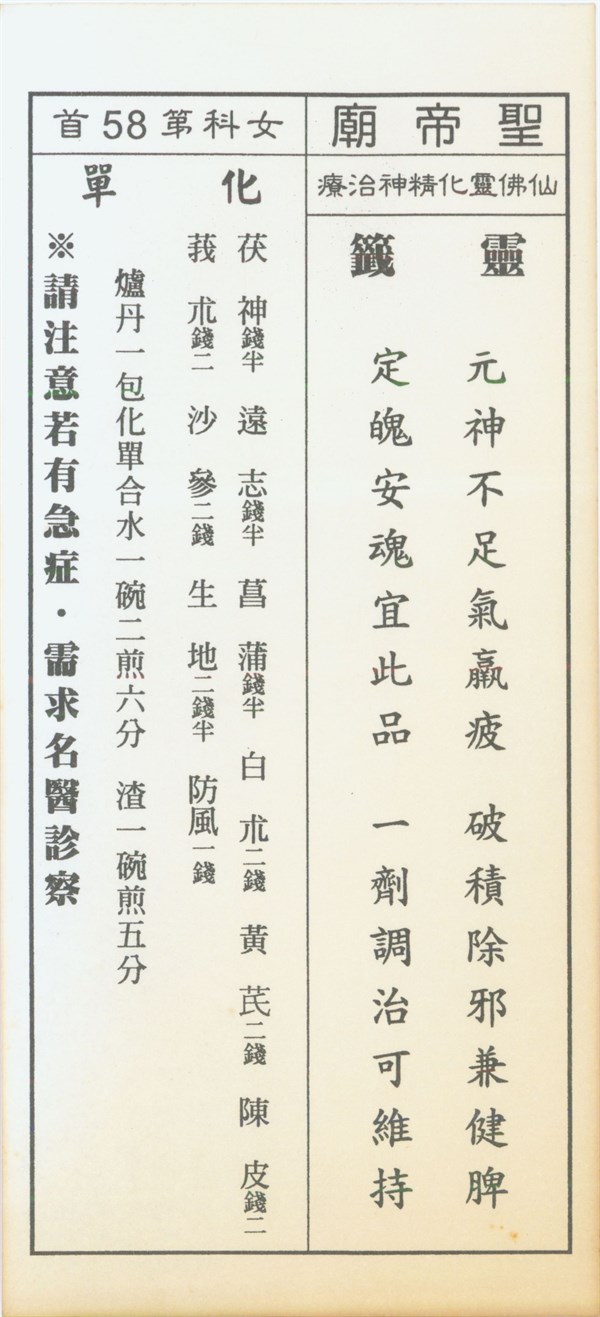 聖帝廟
仙佛靈化精神治療
靈籤
元神不足氣羸疲 破積除邪兼健脾
定魄安魂宜此品 一劑調治可維持
女科第58首
化單
茯神錢半 遠志錢半 菖蒲錢半 白朮二錢 黃芪二錢 陳皮錢二
莪朮錢二 沙參二錢 生地二錢半 防風一錢
爐丹一包化單合水一碗二煎六分 渣一碗煎五分
※請注意若有急症・需求名醫診察